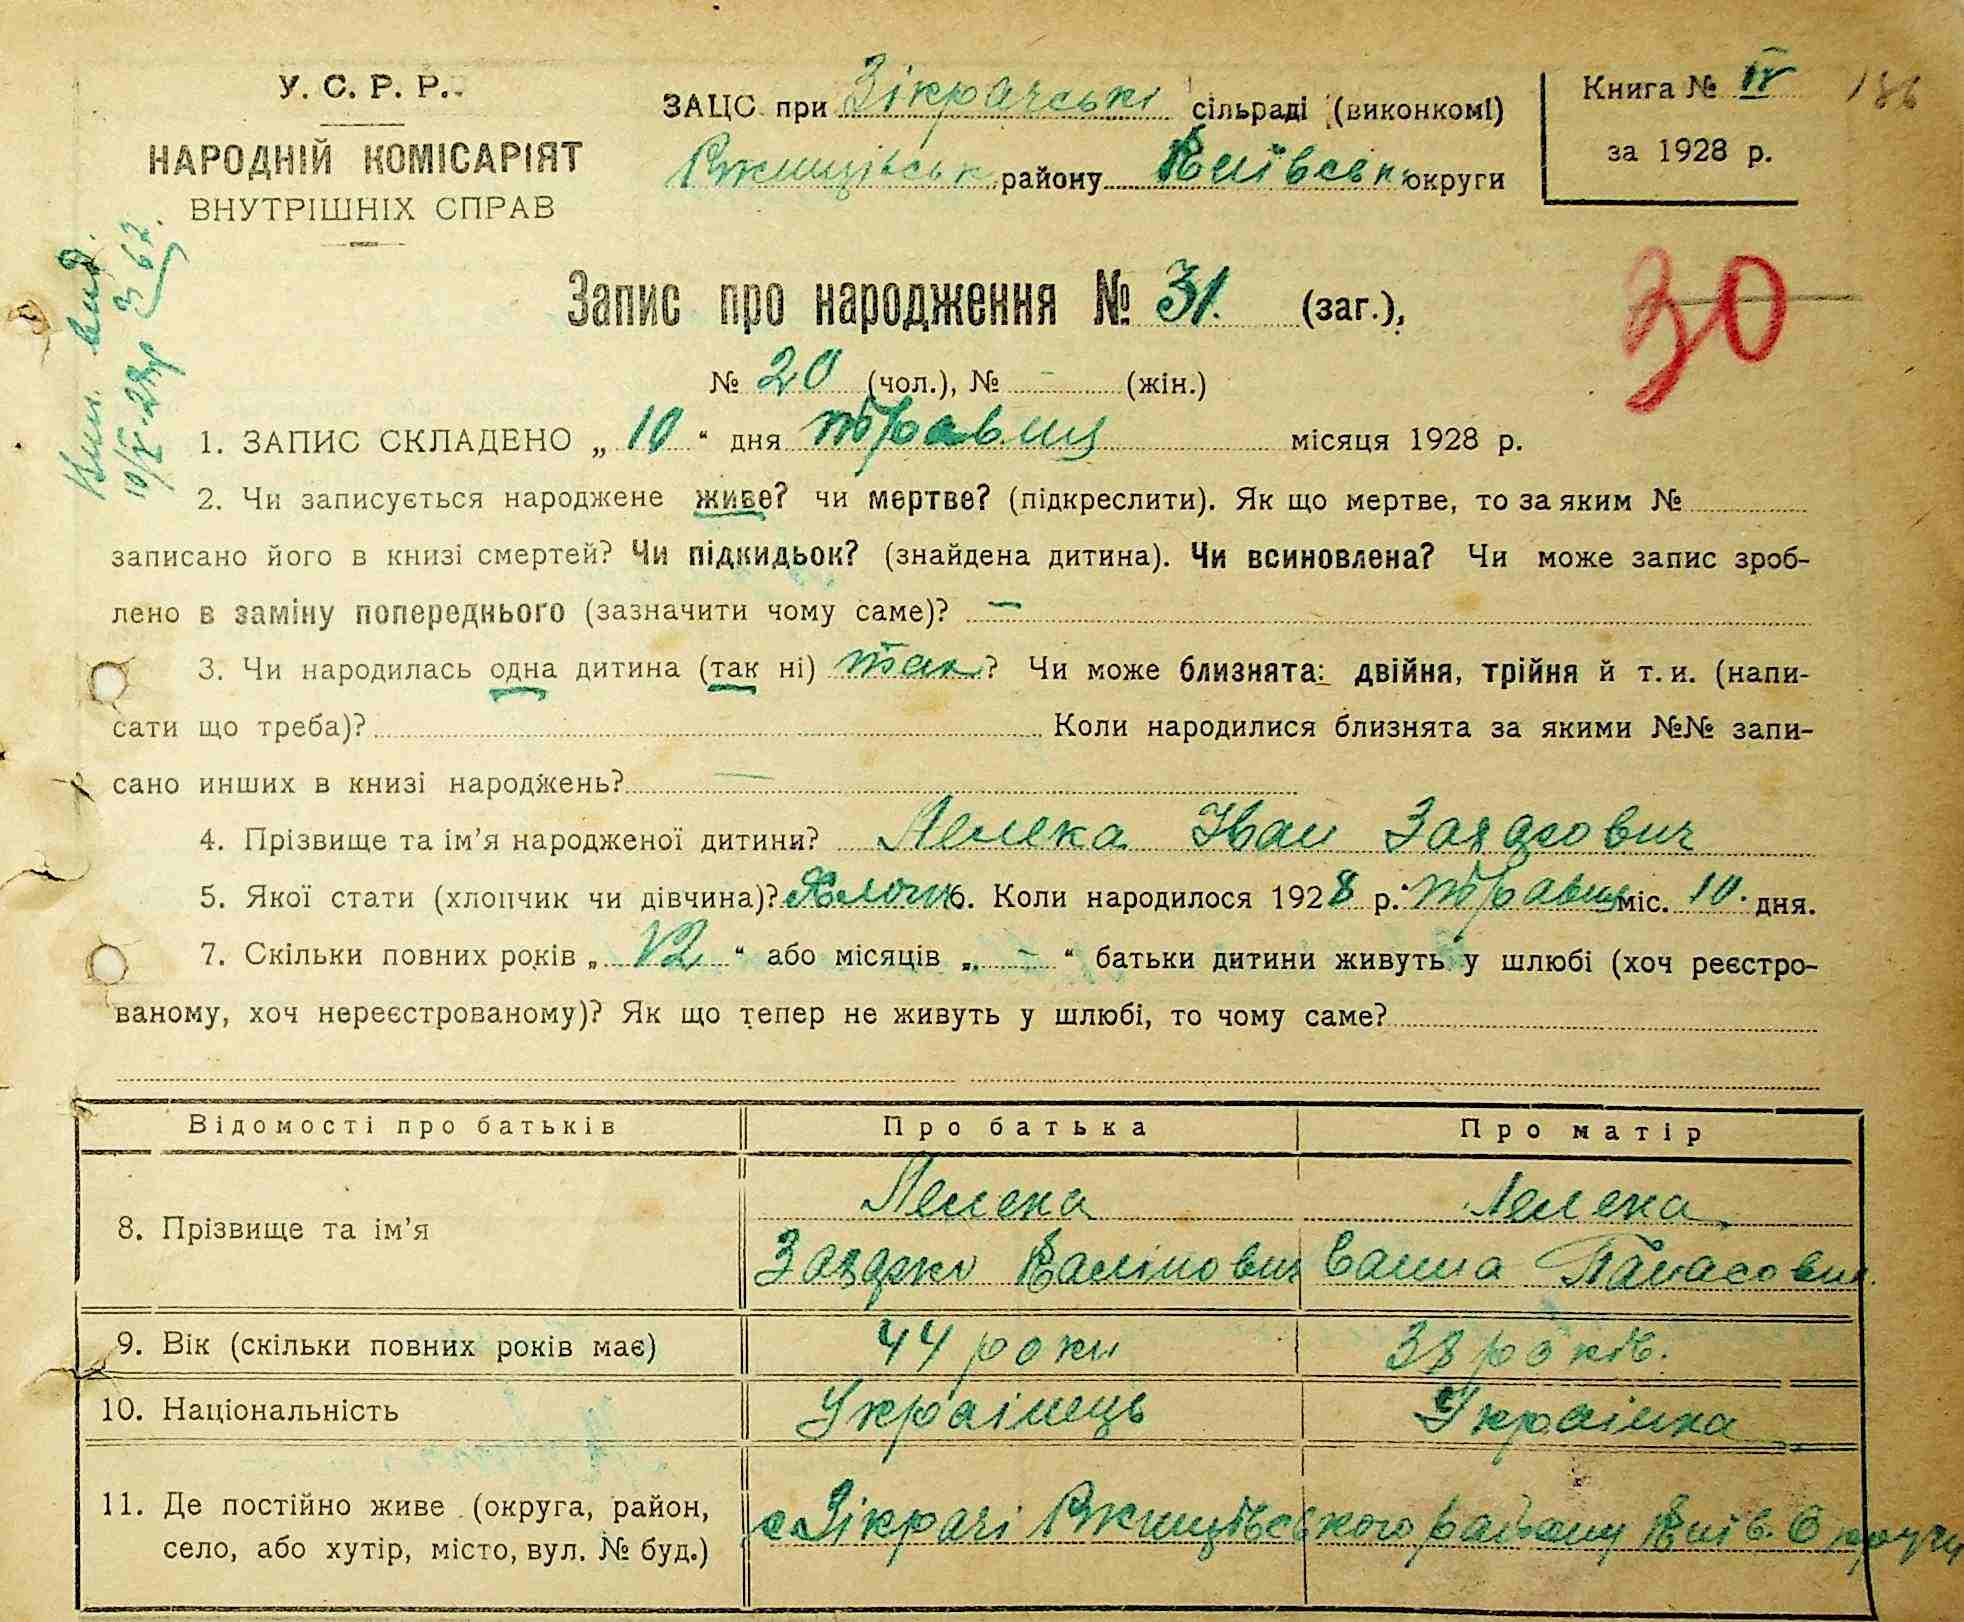 У. С. Р. Р.
НАРОДНІЙ КОМІСАРІЯТ
ВНУТРІШНІХ СПРАВ
ЗАЦС при Зікрачські сільраді (виконкомі)
Ржищівськ району Київськ округи
Книга № IV 186
за 1928 р.
Запис про народження № 31. (заг.),
30
№ 20 (чол.), № - (жін.)
1. ЗАПИС СКЛАДЕНО „ 10 “ дня травня місяця 1928 р.
2. Чи записується народжене живе? чи мертве? (підкреслити). Як що мертве, то за яким №
записано його в книзі смертей? Чи підкидьок? (знайдена дитина). Чи всиновлена? Чи може запис зроб-
лено в заміну попереднього (зазначити чому саме)? —
3. Чи народилась одна дитина (так ні) так? Чи може близнята: двійня, трійня й т. и. (напи-
сати що треба)? Коли народилися близнята за якими №№ запи-
сано инших в книзі народжень? —
4. Прізвище та ім’я народженої дитини? Лелека Іван
5. Якої стати (хлопчик чи дівчина)? Хлопч 6. Коли народилося 1928 р. травня міс. 10. дня.
7. Скільки повних років „ 12 “ або місяців „ - “ батьки дитини живуть у шлюбі (хоч реєстро-
ваному, хоч нереєстрованому)? Як що тепер не живуть у шлюбі, то чому саме?
Відомості про батьків Про батька Про матір
8. Прізвище та ім’я Лелека Лелека
Панасовн.
9. Вік (скільки повних років має) 44 роки 38 років.
10. Національність Українець Українка
11. Де постійно живе (округа, район,
село, або хутір, місто, вул. № буд.) с Зікрачі Ржищівського району Київ. Округи